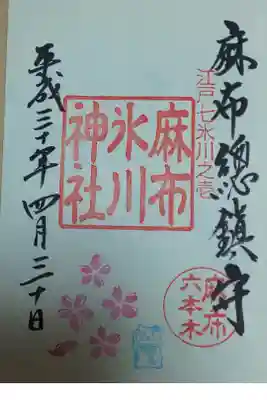 麻布總鎮守
江戸七氷川之壱
麻布
氷川
神社
麻布
六本木
平成三十年四月三十日